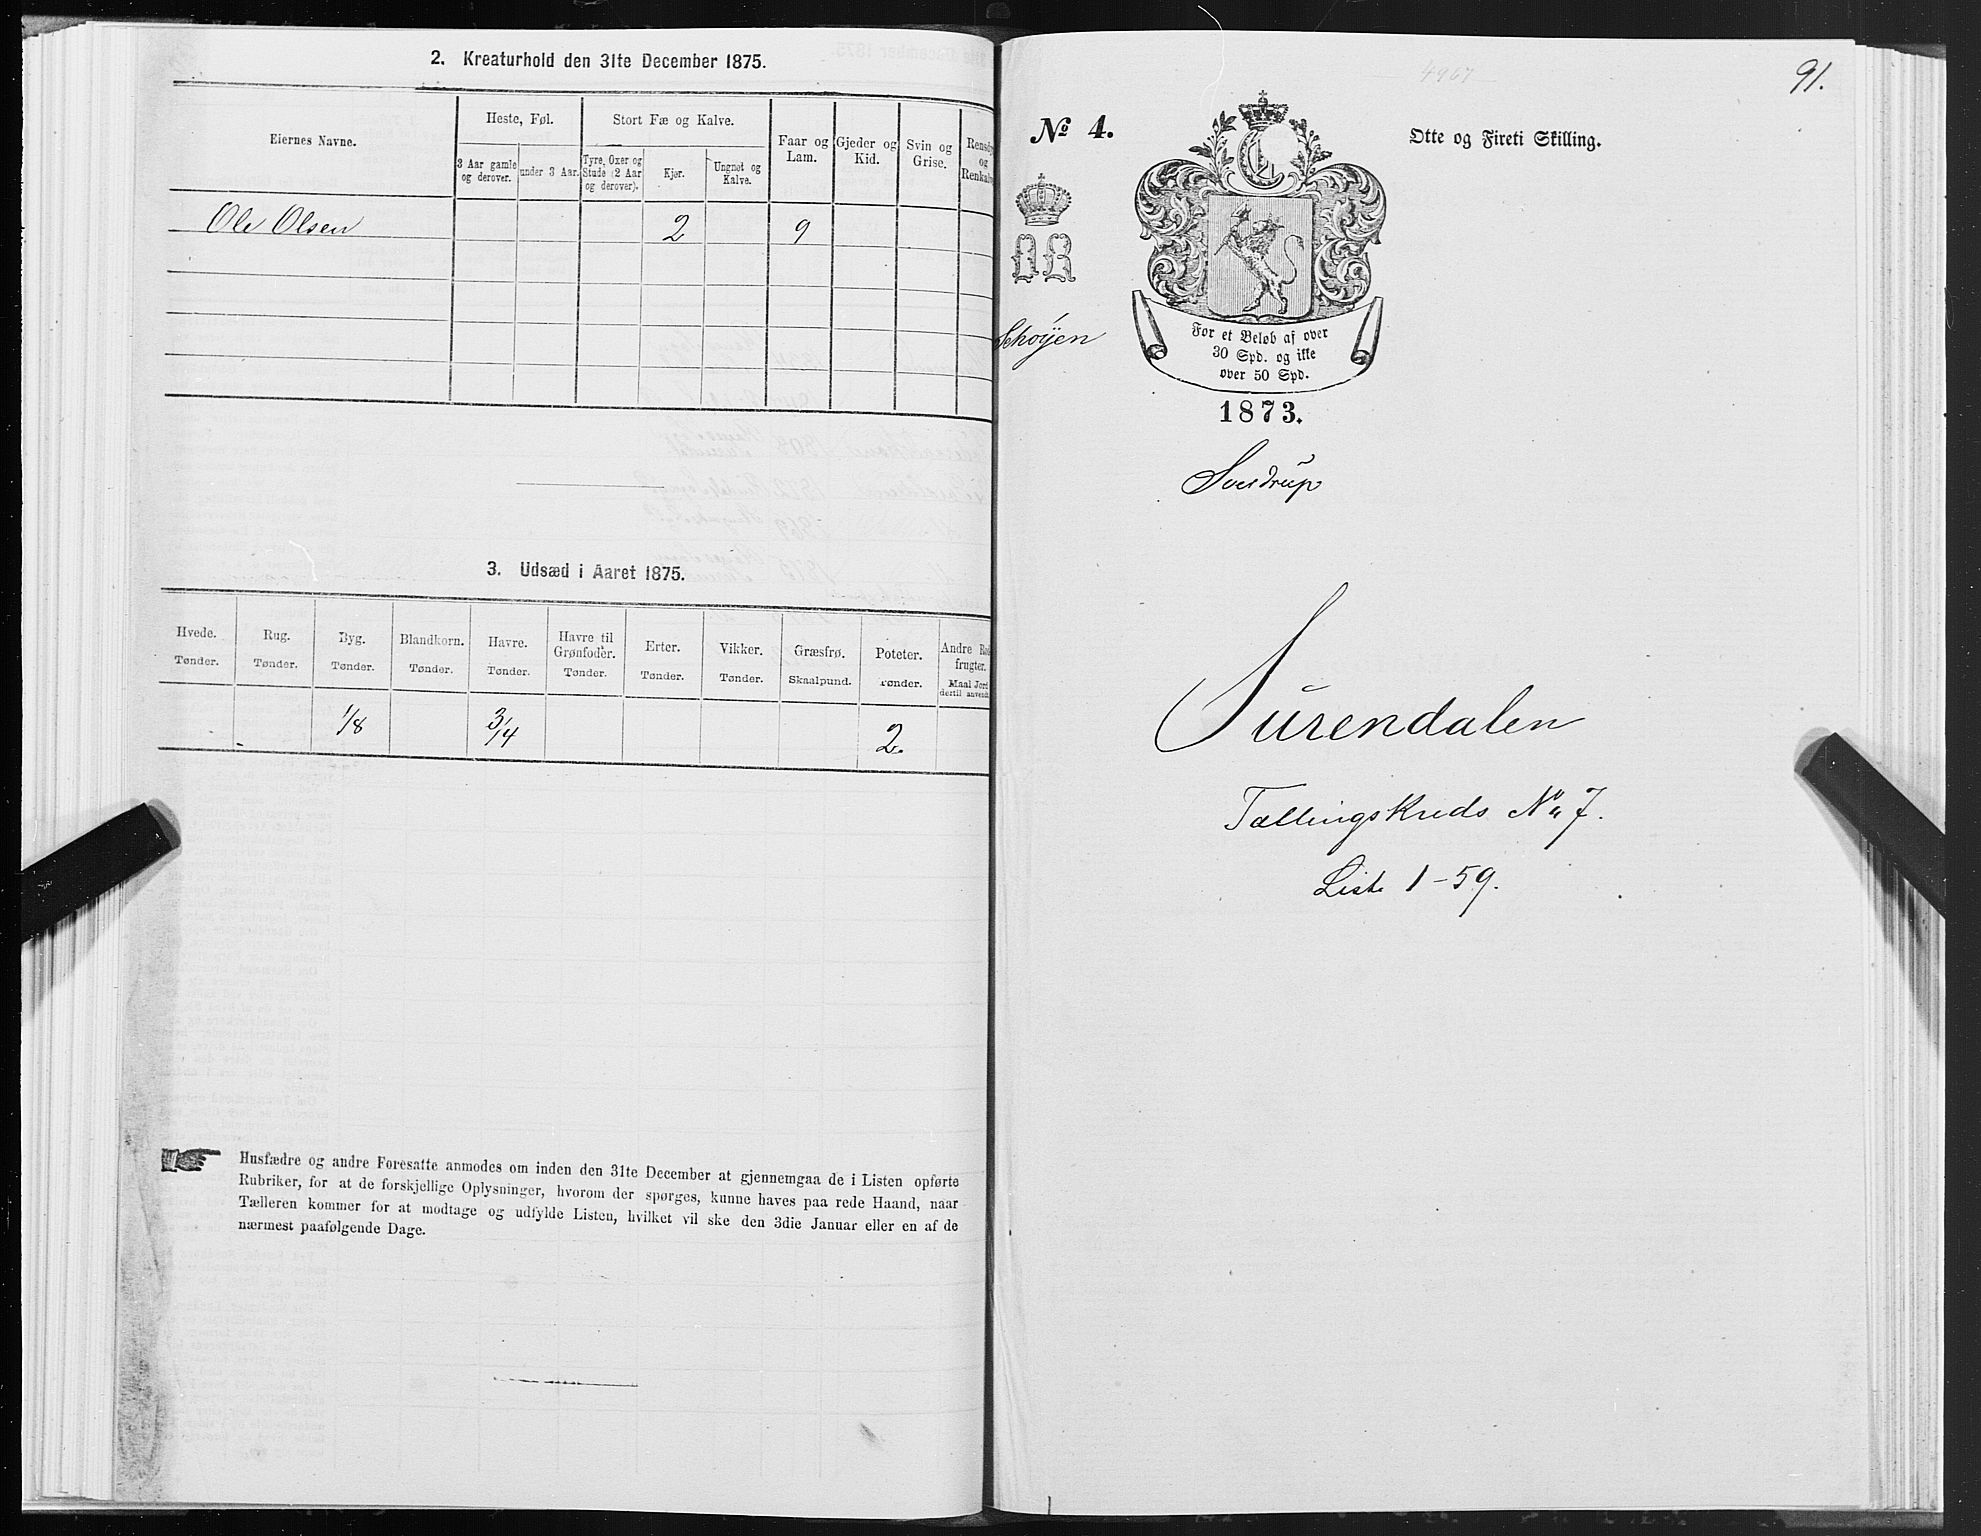 2. Kreaturhold den 31te December 1875.
Eiernes Navne.
Heste, Føl.
Stort Fæ og Kalve.
Faar og Lam.
Gjeder og Kid.
Svin og Grise.
3 Aar gamle og derover.
under 3 Aar.
Tyre, Oxer og Stude (2 Aar og derover).
Kjør.
Ungnøt og Kalve.
Ole Olsen 2 9
3. Udsæd i Aaret 1875.
Hvede. Rug. Byg. Blandkorn. Havre. Havre til Grønfoder. Erter. Vikker. Græsfrø. Poteter. Andre
frugter.
Tønder. Tønder. Tønder. Tønder. Tønder. Tønder. Tønder. Tønder. Skaalpund. Tønder. Maal Jord
dertil
1/8 3/4 2.
Husfædre og andre Foresatte anmodes om inden den 31te December at gjennemgaa de i Listen opførte
Rubriker, for at de forskjellige Oplysninger, hvorom der spørges, kunne haves paa rede Haand, naar
Tælleren kommer for at modtage og udfylde Listen, hvilket vil ske den 3die Januar eller en af de
nærmest paafølgende Dage.
4967
91.
No 4.
Otte og Fireti Skilling.
OR
Schøyen
For et Beløb af over
30 Spd. og ikke
over 50 Spd.
1873.
Sverdrup
Surendalen
Tællingskreds No 7.
Liste 1-59.